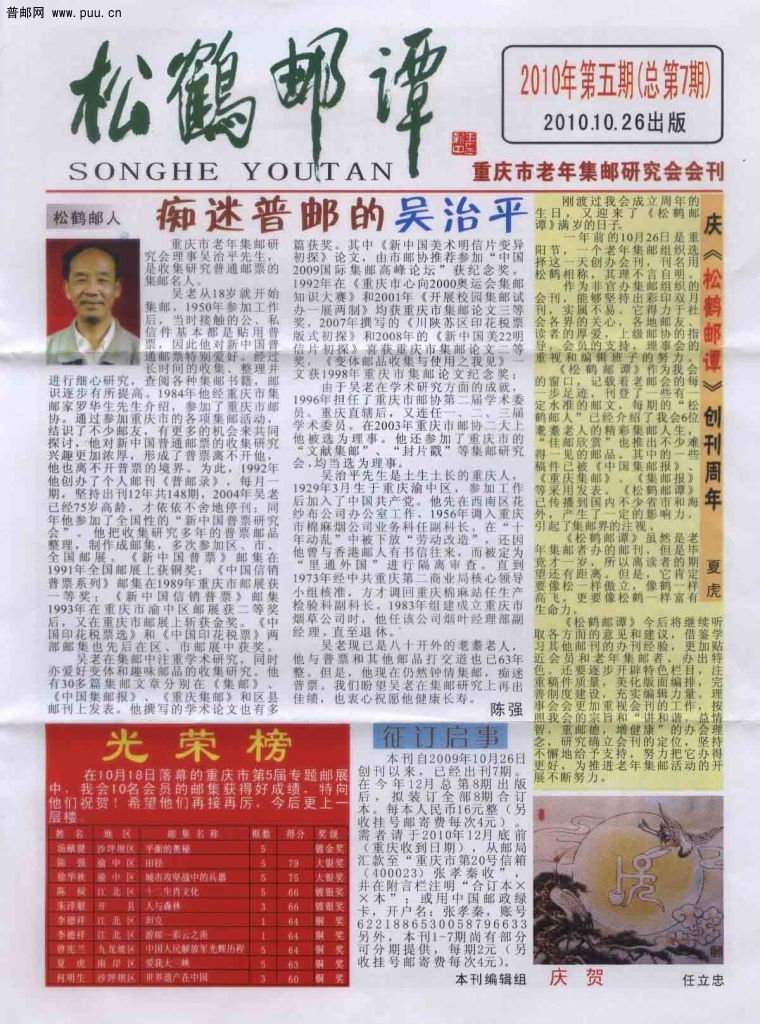 普邮网 www.puu.cn
松鹤邮谭
SONGHE YOUTAN
2010年第五期(总第7期)
2010.10.26出版
重庆市老年集邮研究会会刊
松鹤邮人
痴迷普邮的吴治平
重庆市老年集邮研
究会理事吴治平先生,
是收集研究普通邮票的
集邮名人。
吴老从18岁就开始
集邮,1950年参加工作
后,当时接触的公、私
信件基本都是贴用普
票,因此他对新中国普
通邮票特别爱好。经过
长时间的收集、整理并
进行细心研究,查阅各种集邮书籍,邮
识逐步有所提高。1984年他经重庆市集
邮家罗华生先生介绍,参加了重庆市邮
协。通过参加重庆市的各项集邮活动,
结识了不少邮友,有更多的机会来共同
探讨,他对新中国普通邮票的收集研究
兴趣更加浓厚,形成了普票离不开他,
他也离不开普票的境界。为此,1992年
他创办了个人邮刊《普邮录》,每月一
期,坚持出刊12年共148期,2004年吴老
已经75岁高龄,才依依不舍地停刊;同
年他参加了全国性的“新中国普票研究
会”。他把收集研究多年的普票邮品
整理,制作成邮集,多次参加区、市、
全国邮展。《新中国普票》邮集在
1991年全国邮展上获铜奖;《中国信销
普票系列》邮集在1989年重庆市邮展获
一等奖;《新中国信销普票》邮集
1993年在重庆市渝中区邮展获二等奖
后,又在重庆市邮展上斩获金奖。《中
国印花税票选》和《中国印花税票》两
部邮集也先后在区、市邮展中获奖。
吴老在集邮中注重学术研究,同时
亦爱好变体和趣味邮品的收集研究。他
有30多篇集邮文章分别在《集邮》、
《中国集邮报》、《重庆集邮》和区县
邮刊上发表。他撰写的学术论文也有多
篇获奖。其中《新中国美术明信片变异
初探》论文,由市邮协推荐参加“中国
2009国际集邮高峰论坛”获纪念奖。
1992年在《重庆市心向2000奥运会集邮
知识大赛》和2001年《开展校园集邮试
办一展两制》均获重庆市集邮论文三等
奖,2007年撰写的《川陕苏区印花税票
版式初探》和2008年的《新中国美22明
信片初探》喜获重庆市集邮论文二等
奖,《变体邮品收集与使用之我见》一
文获1998年重庆市集邮论文纪念奖;
由于吴老在学术研究方面的成就,
1996年担任了重庆市邮协第二届学术委
员。重庆直辖后,又连任一、二、三届
学术委员。在2003年重庆市邮协二大上
他被选为理事。他还参加了重庆市的
“文献集邮”、“封片戳”等集邮研究
会,均当选为理事。
吴治平先生是土生土长的重庆人,
1929年3月生于重庆渝中区,参加工作
后加入了中国共产党。他先在西南区花
纱布公司办公室工作,1956年调入重庆
市棉麻烟公司业务科任副科长。在“十
年动乱”中被下放“劳动改造”,还因
他曾与香港邮人有书信往来,而被定为
“里通外国”进行隔离审查。直到
1973年经中共重庆第二商业局核心领导
小组核准,方才调回重庆棉麻站任生产
检验科副科长。1983年组建成立重庆市
烟草公司时,他任该公司烟叶经理部副
经理,直至退休。
吴老现已是八十开外的耄耋老人,
他与普票和其他邮品打交道也已63年
整。但是,他现在仍然钟情集邮,痴迷
普票。我们盼望吴老在集邮研究上再出
佳绩,也衷心祝愿他健康长寿。
陈强
庆《松鹤邮谭》创刊周年
夏虎
刚渡过我会成立周年的
生日,又迎来了《松鹤邮
谭》满岁的日子。
一年前的10月26日是重
阳节,一个老年集邮组织选
择这一天创办会刊,刊名用
松鹤相称,其理不言自明。
作为非官办集邮组织的
会刊,能够坚持出彩印双月
刊,实属不易。它得力于社
会各界的关心,各地邮友、
读者的厚爱,上级邮协的指
导,会员的支持,理事会的
重视和编辑班子的努力。
《松鹤邮谭》作为我会
的窗口,记载着老邮会的每
一步足迹,刊登了一些有一
定水准的邮文,每期的“松
鹤邮人”已经介绍了我会6位
耄耋老人的精彩集邮人生,
“佳邮欣赏”也推出不少难
得一见的邮品。其中的一些
稿件已被《中国集邮报》、
《重庆集邮》、《集邮报》
等采用发表。《松鹤邮谭》
已传播到国内不少省市和海
外,产生了一定的影响力,
引起了集邮界的注视。
《松鹤邮谭》虽然是老
年集邮者办的邮刊,但是毕
竟才一岁,所以离读者的期
望还有距离。但是,它肯定
要像松一样傲立,像鹤一样
高飞,更要像松鹤一样富有
生命力。
《松鹤邮谭》今后将继续听
取各方面的意见和建议,借鉴学
习其他邮刊的办刊经验,更加贴
近会员和老年集邮者,办出特
色,还要逐步开辟特色栏目,注
重稿件质量,美化版面编排,完
善制度建设,充实编辑力量。理
事会会更加重视会刊的工作,按
照我会的宗旨和“讲和谐,益情
智,重邮德,增健康”的办会理
念,研究确立会刊的定位,坚持
不懈地给予支持,努力把它办得
更好,为推进老年集邮活动的开
展不断努力。
光荣榜
在10月18日落幕的重庆市第5届专题邮展
中,我会10名会员的邮集获得好成绩,特向
他们祝贺!希望他们再接再厉,今后更上一
层楼。
姓名 地区 邮集名称 框数 得分 奖级
汤献健 沙坪坝区 平衡的奥秘 5 镀金奖
陈强 渝中区 田径 5 79 大银奖
徐华秋 渝中区 城市攻坚战中的兵器 5 75 大银奖
陈校 江北区 十二生肖文化 5 66 镀银奖
朱泽棍 开县 人与森林 3 66 镀银奖
李德祥 江北区 坦克 1 64 铜奖
李德祥 江北区 游邮一彩云之南 1 64 铜奖
曾宪兰 九龙坡区 中国人民解放军光辉历程 5 64 铜奖
夏虎 南岸区 爱我大三峡 5 63 铜奖
何明生 沙坪坝区 世界遗产在中国 3 60 铜奖
征订启事
本刊自2009年10月26日
创刊以来,已经出刊7期。
在今年12月总第8期出版
后,拟装订全部8期合订
本。每本人民币16元整(另
收挂号邮寄费每次4元)。
需者请于2010年12月底前
(重庆收到日期),从邮局
汇款至“重庆市第20号信箱
(400023)张孝秦收”,
并在附言栏注明“合订本××
本”;或用中国邮政绿
卡,开户名:张孝秦,账号
6221886530058796633
另外,本刊1-7期尚有部分
可分期提供,每期2元(另
收挂号邮寄费每次4元)。
本刊编辑组
庆贺
任立忠